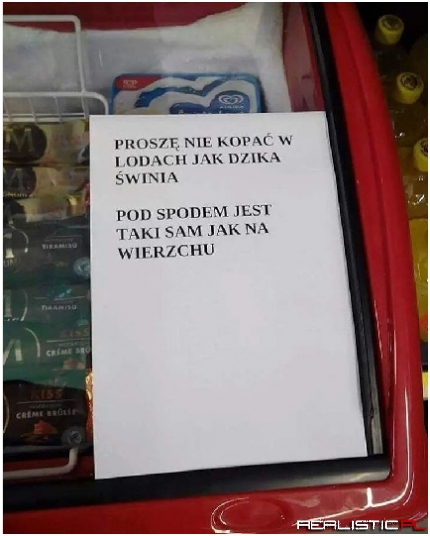 PROSZĘ NIE KOPAĆ W
LODACH JAK DZIKA
ŚWINIA
POD SPODEM JEST
TAKI SAM JAK NA
WIERZCHU
M
TIRAMISÙ
TIRAMISÙ
M
KISS
CRÈME BRÛLÉE
KISS
CRÈME BRÛLÉE
REALISTIC.PL